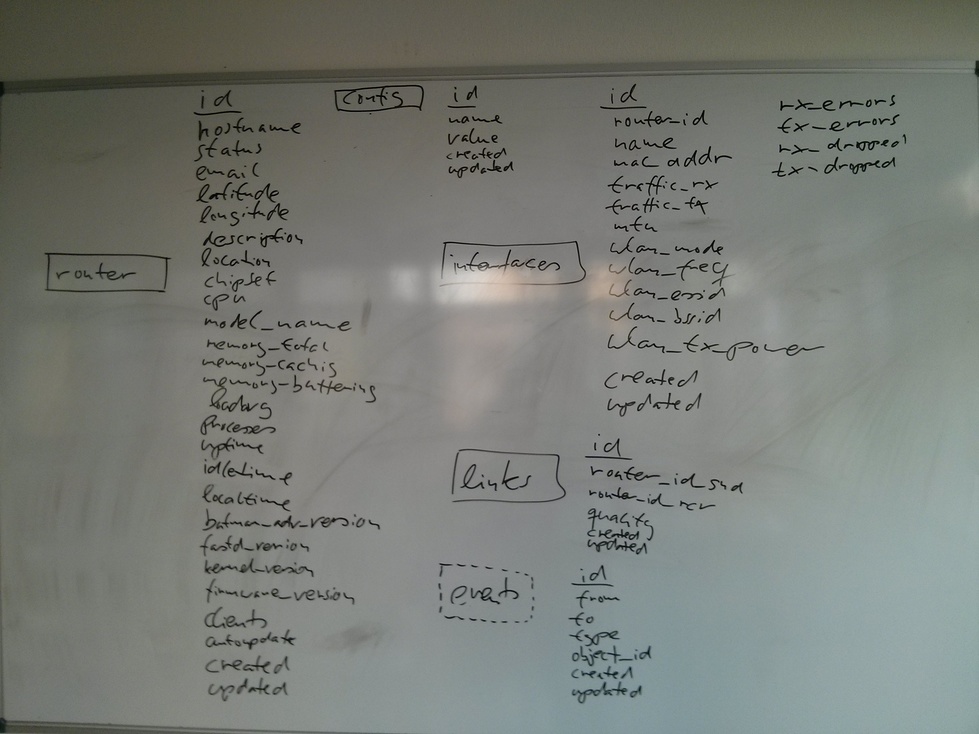 router
id
hostname
status
email
latitude
longitude
description
location
chipset
cpu
model_name
memory_total
memory-caching
memory-buffering
loadavg
processes
uptime
idletime
localtime
batman_adv_version
fastd_version
kernel_version
firmware_version
clients
autoupdate
created
updated
config
id
name
value
created
updated
interfaces
id
router_id
name
mac_addr
traffic_rx
traffic_tx
mtu
wlan_mode
wlan_freq
wlan_essid
wlan_bssid
wlan_tx_power
created
updated
rx_errors
tx_errors
rx_dropped
tx_dropped
links
id
router_id_snd
router_id_rcv
quality
created
updated
events
id
from
to
type
object_id
created
updated